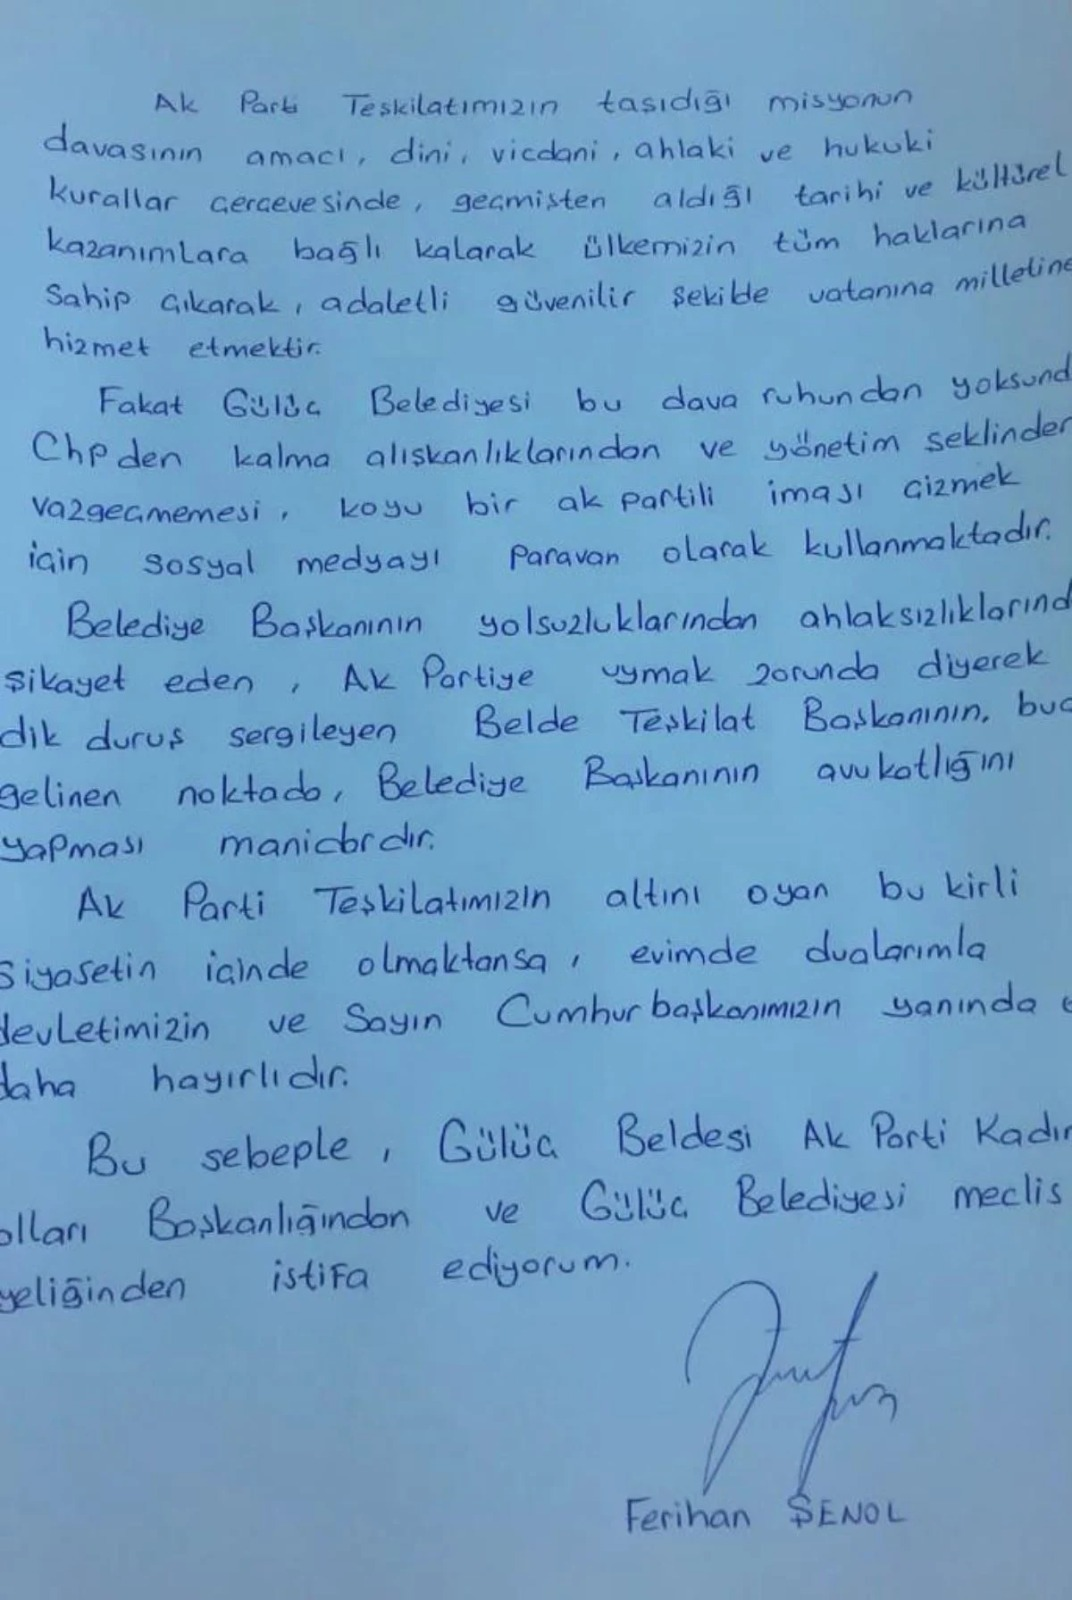 Ak Parti Teşkilatımızın taşıdığı misyonun
davasının amacı, dini, vicdani, ahlaki ve hukuki
kurallar çerçevesinde, geçmişten aldığı tarihi ve kültürel
kazanımlara bağlı kalarak ülkemizin tüm haklarına
Sahip çıkarak, adaletli güvenilir şekilde vatanına milletine
hizmet etmektir.
Fakat Gülüç Belediyesi bu dava ruhundan yoksund
Chpden kalma alışkanlıklarından ve yönetim şeklinden
vazgeçmemesi, koyu bir ak partili imajı çizmek
için sosyal medyayı paravan olarak kullanmaktadır.
Belediye Başkanının yolsuzluklarından ahlaksızlıklarınd
şikayet eden, Ak Partiye uymak zorunda diyerek
dik duruş sergileyen Belde Teşkilat Başkanının, bug
gelinen noktada, Belediye Başkanının avukatlığını
yapması manidardır.
Ak Parti Teşkilatımızın altını oyan bu kirli
siyasetin içinde olmaktansa, evimde dualarımla
devletimizin ve Sayın Cumhurbaşkanımızın yanında
daha hayırlıdır.
Bu sebeple, Gülüç Beldesi Ak Parti Kadın
olları Başkanlığından ve Gülüç Belediyesi meclis
yeliğinden istifa ediyorum.
Ferihan ŞENOL